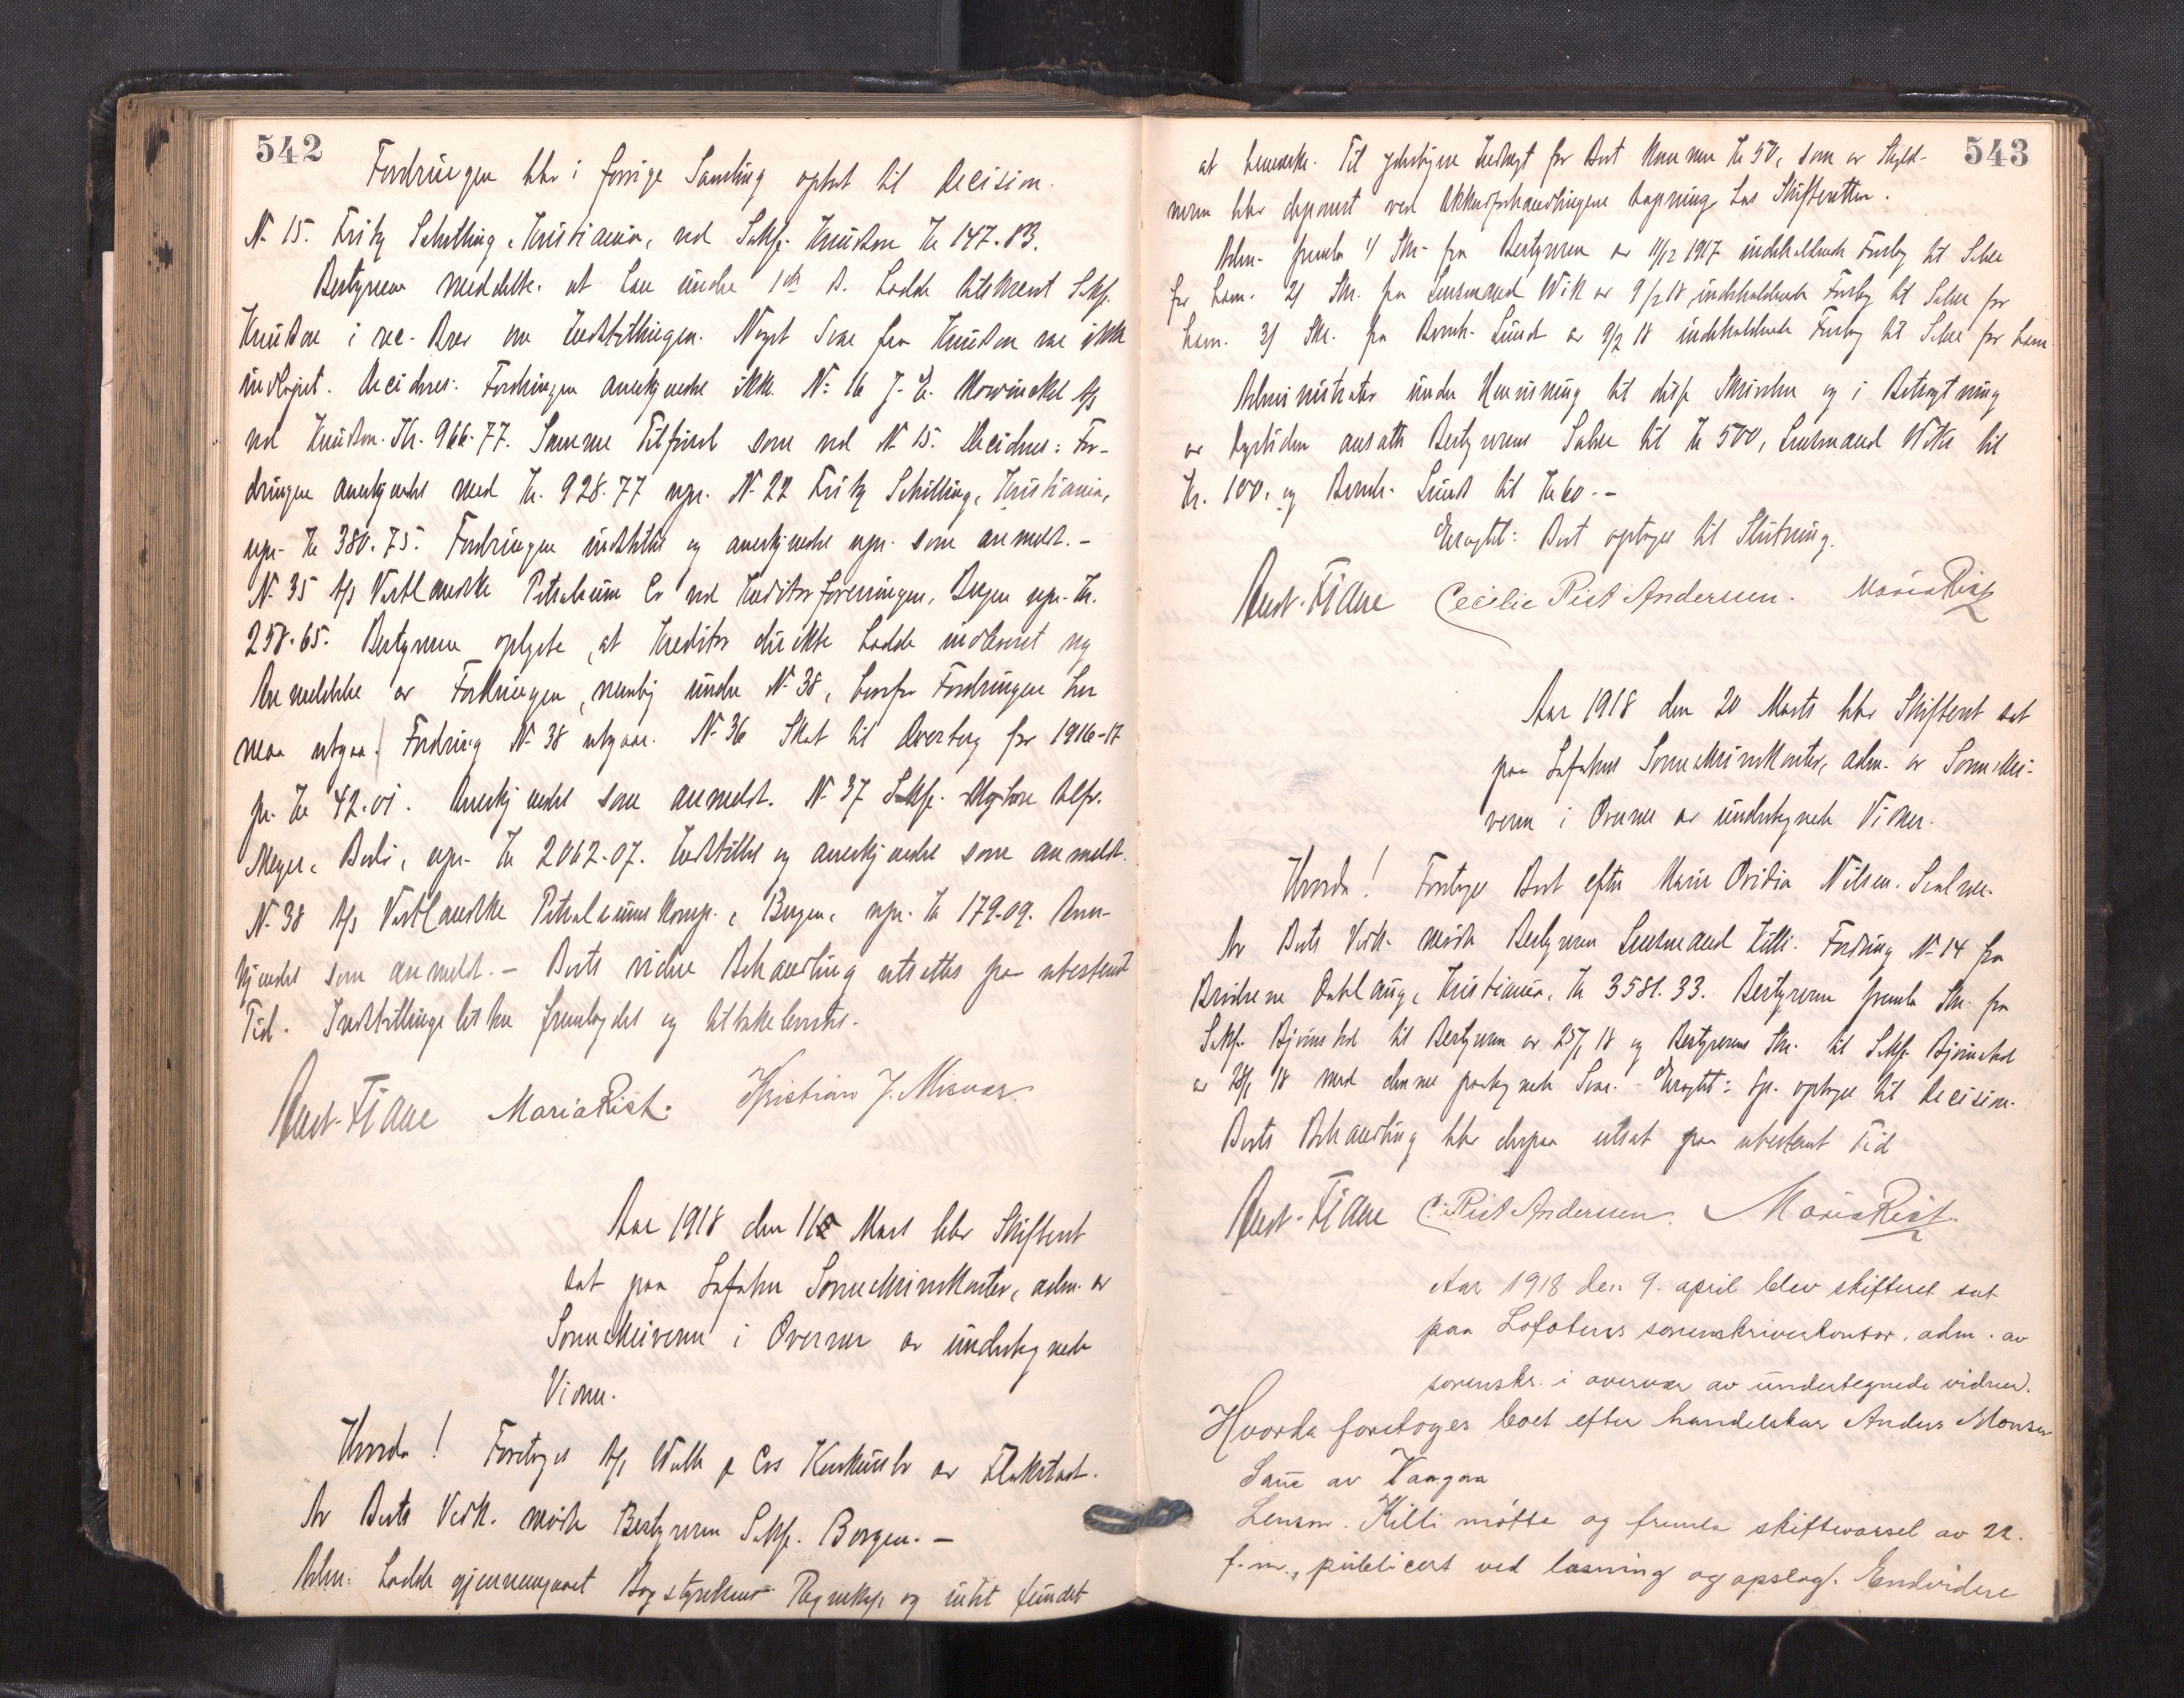 542
Fordringen blev i forrige Samling optat til Decision.
N. 15. Fritz Schilling, Kristiania, ved Sakf. Knudsen Kr 147.83.
Bestyreren meddelte at han under 1ste ds. hadde tilskrevet Sakf.
Knudsen i rec. Brev om Indstillingen. Noget Svar fra Knudsen var ikke
indløpet. Decideres: Fordringen anerkjendes ikke. N: 16 J. E. Mowinckel A/s
ved Knudsen. Kr. 966.77. Samme Tilførsel som ved N. 15. Decideres: For-
dringen anerkjendes med Kr. 928.77 upr. N. 22 Fritz Schilling, Kristiania,
upr. Kr 380.75. Fordringen indstilles og anerkjendes upr. som anmeldt. -
N. 35 A/s Vestlandske Petroleums Co ved Kreditorforeningen, Bergen upr. Kr.
258.65. Bestyreren oplyste, at Kreditor direkte hadde indleveret ny
Anmeldelse av Fordringen, nemlig under N. 38, hvorfor Fordringen her
maa utgaa. Fordring N. 38 utgaar. N. 36 Skat til Buksnes for 1916-17
pr. Kr 42.01. Anerkjendes som anmeldt. N. 37 Sakf. Alfr.
Meyer, Bodø, upr. Kr 2062.07. Indstilles og anerkjendes som anmeldt.
N. 38 A/s Vestlandske Petroleums Komp., Bergen, upr. Kr 179.09. Aner-
kjendes som anmeldt. - Boets videre Behandling utsattes paa ubestemt
Tid. Indstillingslisten fremlagdes og tilbakeleveredes.
Aust-Fiane Maria Rist. Kristian J. Misvær.
Aar 1918 den 16 Mars blev Skifteret
sat paa Lofotens Sorenskriverkontor, adm. av
Sorenskriveren i Overvær av undertegnede
Vidner.
Hvorda! Foretoges A/s Walle & Cos Konkursbo av Flakstad.
Av Boets Vedk. mødte Bestyreren Sakf. Borgen. -
Adm. hadde gjennemgaaet Bogstyrelsens Regnskap og intet fundet
543
at bemerke. Til yderligere Indtægt for Boet kommer Kr 50, som av Skyld-
neren blev deponeret ved Akkordforhandlingens Aapning hos Skifteretten.
Adm. fremla 1/ Skr. fra Bestyreren av 11/12 1917 indeholdende Forslag til Salær
for ham. 2/ Skr. fra Lensmand Wik av 9/2 18 indeholdende Forslag til Salær for
ham. 3/ Skr. fra Bernh. Lund av 9/2 18 indeholdende Forslag til Salær for ham.
Administrator under Henvisning til disse Skrivelser og i Betragtning
av Dyrtiden ansatte Bestyrerens Salær til Kr 500, Lensmand Wiks til
Kr. 100, og Bernh. Lunds til Kr 60.-
Eragtet: Boet optages til Slutning.
Aust-Fiane Cecilie Rist Andersen. Maria Rist
Aar 1918 den 20 Marts blev Skifteret sat
paa Lofotens Sorenskriverkontor, adm. av Sorenskri-
veren i Overvær av undertegnede Vidner.
Hvorda! Foretoges Boet efter Marie Ovidia Nilsen. Svolvær.
Av Boets Vedk. mødte Bestyreren Lensmand Killi. Fordring N. 14 fra
Brødrene Dahl aug, Kristiania, Kr 3581.33. Bestyreren fremla Skr. fra
Sakf. Bjørnstad til Bestyreren av 25/1 18 og Bestyrerens Skr. til Sakf. Bjørnstad
av 28/1 18 med denne paategnede Svar. - Eragtet: Sp. optages til Decision.
Boets Behandling blev derpaa utsat paa ubestemt Tid
Aust-Fiane C. Rist Andersen. Maria Rist.
Aar 1918 den 9. april blev skifteret sat
paa Lofotens sorenskriverkontor, adm. av
sorenskr. i overvær av undertegnede vidner.
Hvorda foretoges boet efter handelskar Anders Monsen
Saue av Vaagan
Lensm. Killi møtte og fremla skiftevarsel av 22.
f.m., publicert ved læsning og opslag. Endvidere